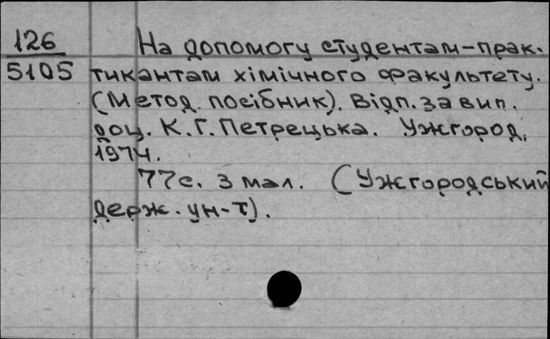 126
5105
На допомогу студентам-прак-
тикантам хімічного факультету.
(Метод. посібник). Відп. за вип.
доц. К.Г. Петрецька. Ужгород,
1974.
77с. з мал. (Ужгородський
держ. ун-т).